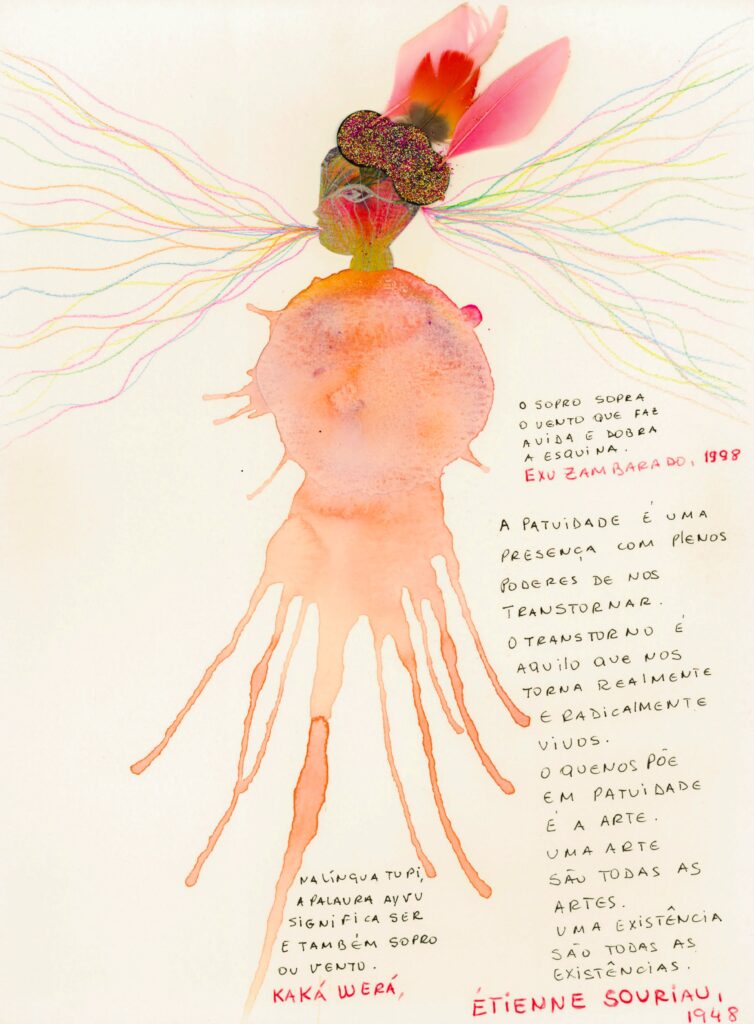 O SOPRO SOPRA
O VENTO QUE FAZ
A VIDA E DOBRA
A ESQUINA.
EXU ZAMBARADO, 1998
A PATUIDADE É UMA
PRESENÇA COM PLENOS
PODERES DE NOS
TRANSTORNAR.
O TRANSTORNO É
AQUILO QUE NOS
TORNA REALMENTE
E RADICALMENTE
VIVOS.
O QUE NOS PÕE
EM PATUIDADE
É A ARTE.
UMA ARTE
SÃO TODAS AS
ARTES.
UMA EXISTÊNCIA
SÃO TODAS AS
EXISTÊNCIAS.
ÉTIENNE SOURIAU,
1948
NA LÍNGUA TUPI,
A PALAVRA AYVU
SIGNIFICA SER
E TAMBÉM SOPRO
OU VENTO.
KAKÁ WERÁ,